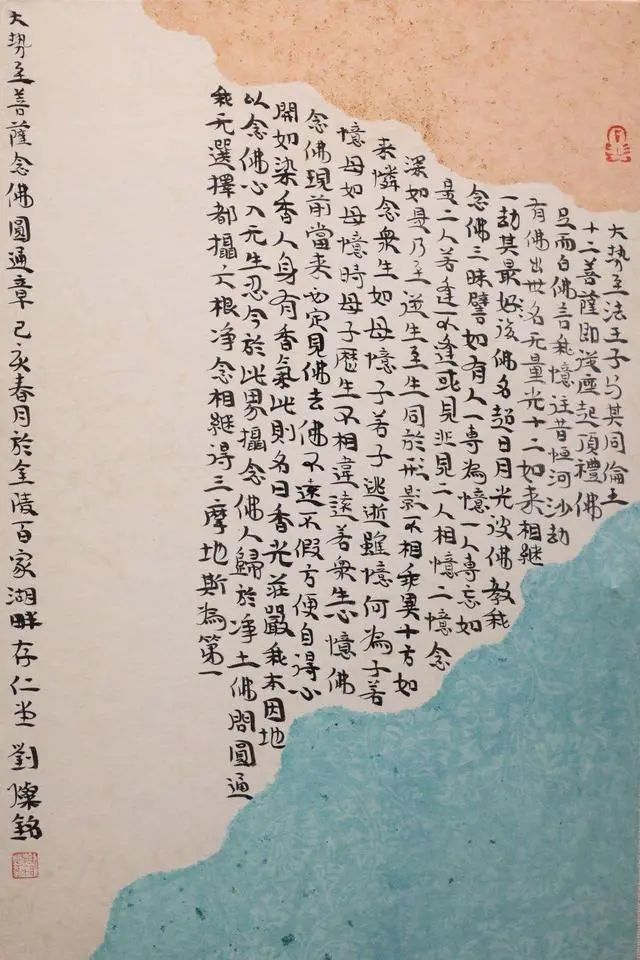 大势至法王子与其同倫五
十二菩薩即從座起頂禮佛
足而白佛言我憶往昔恒河沙劫
有佛出世名无量光十二如来相継
一劫其最後佛名超日月光彼佛教我
念佛三昧譬如有人一專為憶一人專忘如
是二人若逢不逢或見非見二人相憶二憶念
深如是乃至從生至生同於形影不相乖異十方如
来憐念衆生如母憶子若子逃逝雖憶何為子若
憶母如母憶時母子歷生不相違遠若衆生心憶佛
念佛現前當来必定見佛去佛不遠不假方便自得心
開如染香人身有香氣此則名曰香光莊嚴我本因地
以念佛心入无生忍今於此界攝念佛人歸於净土佛問圓通
我无選擇都攝六根净念相継得三摩地斯為第一
大势至菩薩念佛圓通章己亥春月於金陵百家湖畔存仁堂劉燦銘